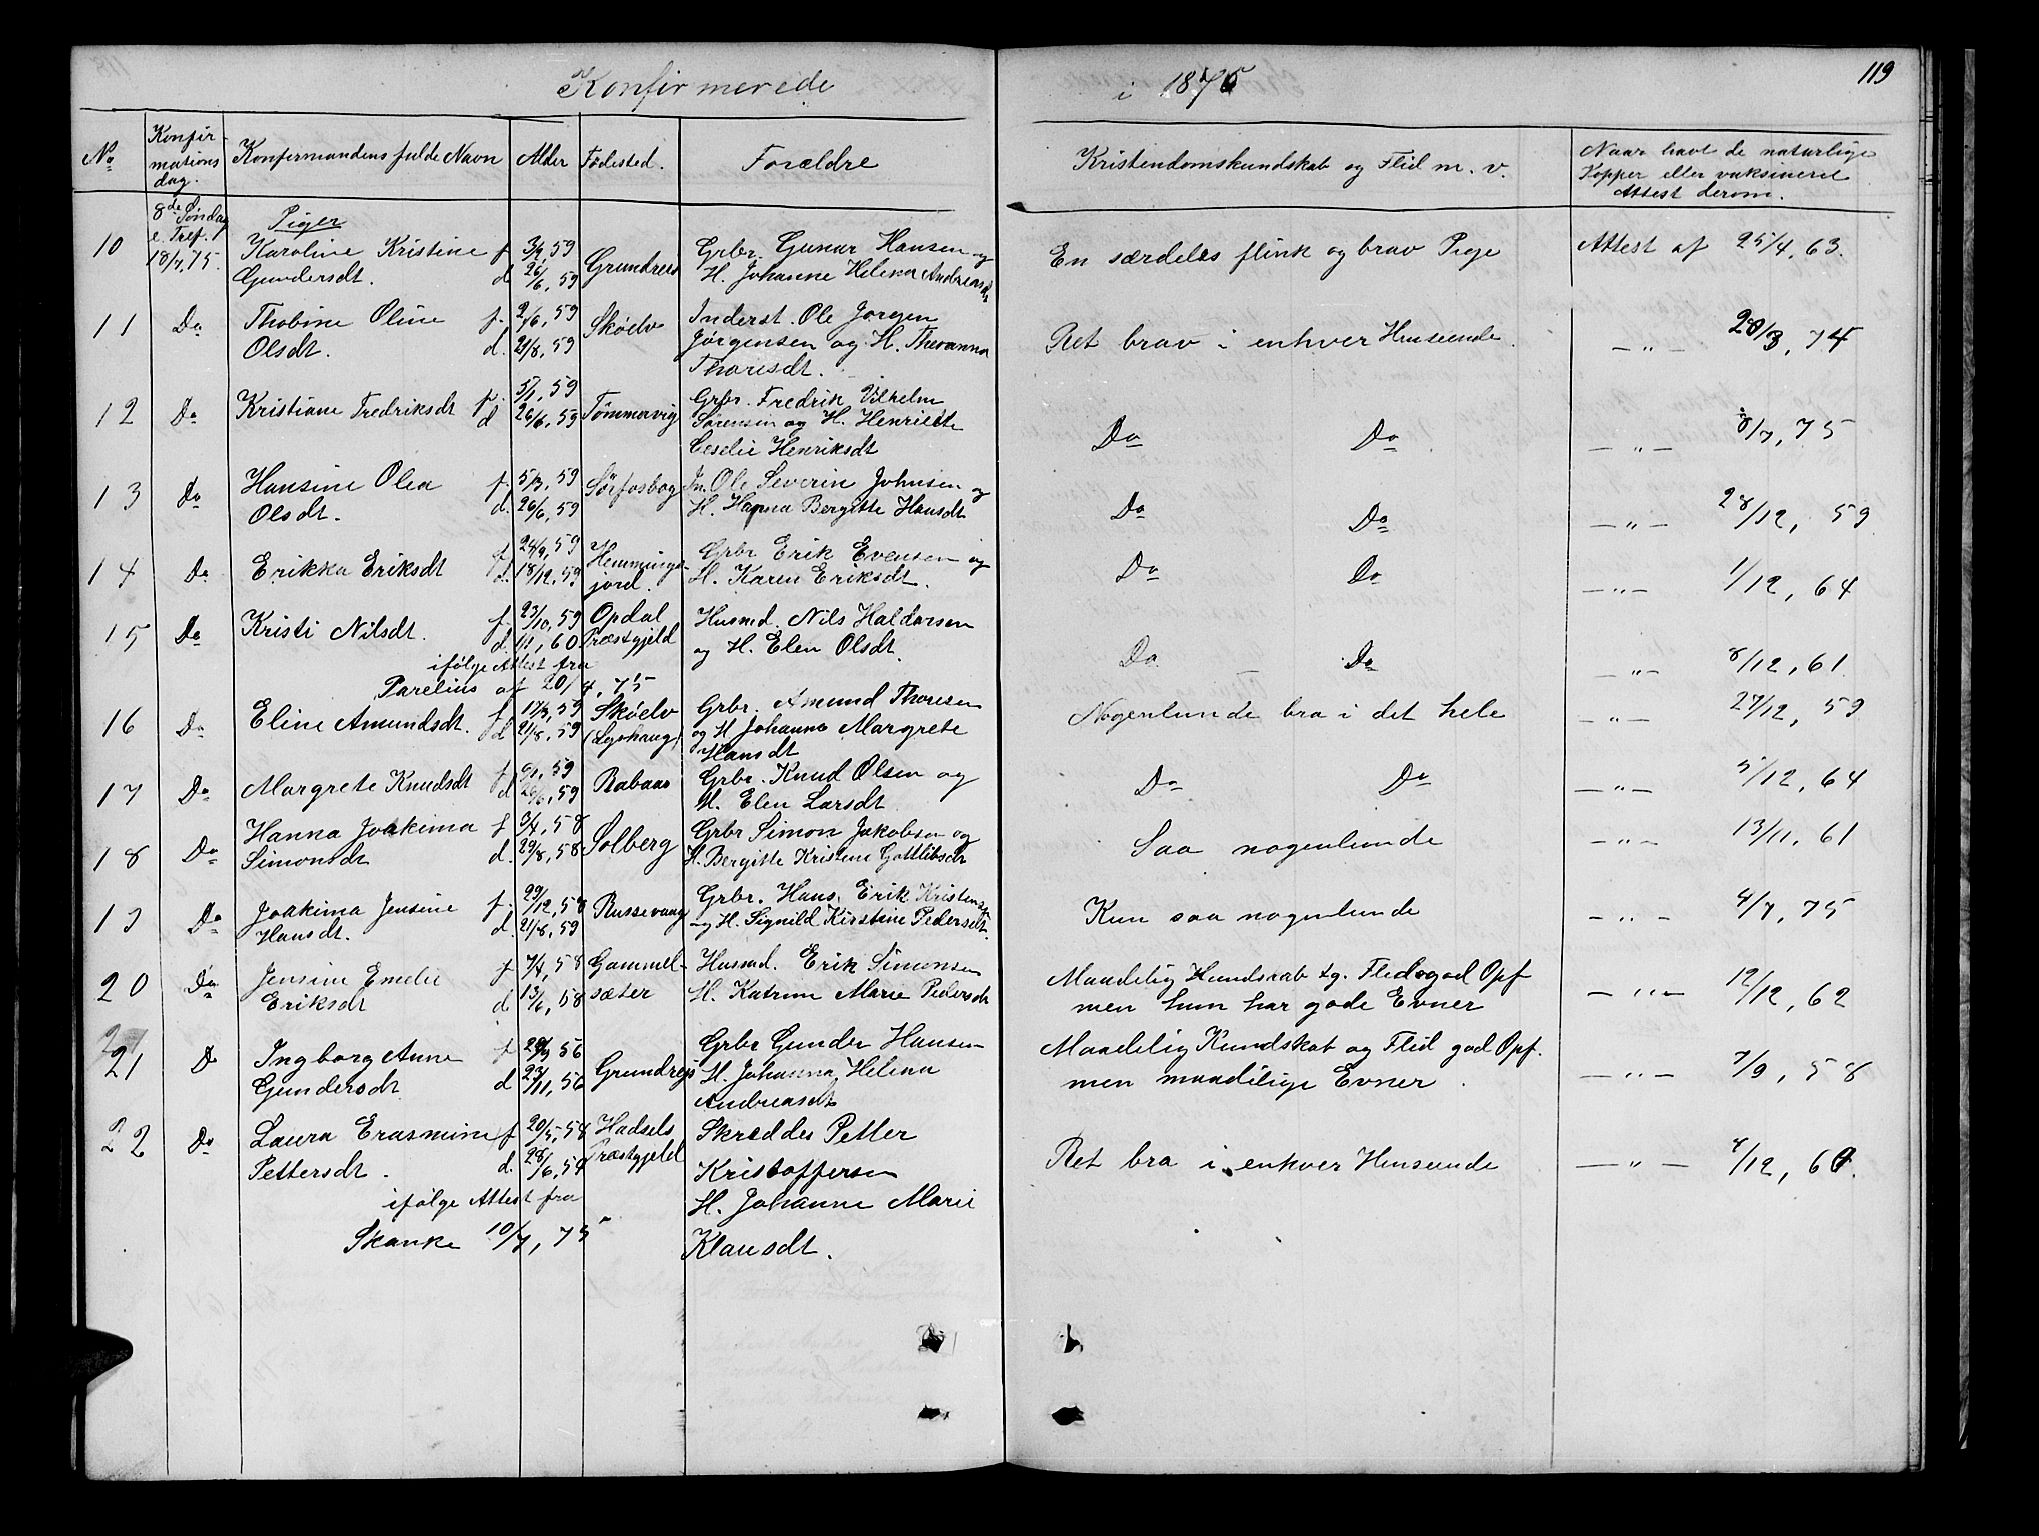 Konfirmerede i 1875
119
No
Konfir-
mations
dag.
Konfermandens fulde Navn
Alder
Fødested.
Forældre
Kristendomskundskab og Flid m. v.
Naar havt de naturlige
Kopper eller vaksineret
Attest derom.
8de Søndag
e. Tref.
18/7, 75.
Piger
10 Karoline Kristine f 3/2, 59 Grundress Grbr. Gunar Hansen og En særdeles flink og brav Pige Attest af 25/4, 63.
Gundersdt. d 26/6, 59 H. Johanne Helena Andreasdt
11 Do Thobine Oline f. 2/6, 59 Sköelv Inderst. Ole Jørgen Ret brav i enhver Henseende. — " — 28/3, 74
Olsdt. d. 21/8, 59 Jørgensen og H. Theranna
Thorisdt.
12 Do Kristiane Fredriksdt f. 5/1, 59 Tömmervig Grbr. Fredrik Vilhelm Do Do — " — 8/7, 75
d 26/6, 59 Sørensen og H. Henriette
Ceselie Henriksdt
13 Do Hansine Olea f. 5/3, 59 Sörfosbog In. Ole Severin Johnsen og Do Do — " — 28/12, 59
Olsdt. d. 26/6, 59 H. Hanna Bergitte Hansdt
14 Do Erikka Eriksdt f 24/9, 59 Hemmings- Grbr Erik Evensen og Do Do — " — 1/12, 64
d. 18/12, 59 jord. H. Karen Eriksdt.
15 Do Kristi Nilsdt. f. 23/10, 59 Opdal Husmd. Nils Haldorsen Do Do — " — 8/12, 61
d. 1/1, 60 Præstgjeld og H. Elen Olsdt.
ifølge Attest fra
Parelius af 20/4, 75
16 Do Eline Amundsdt. f 17/3, 59 Sköelv Grbr. Amund Thoresen Nogenlunde bra i det hele — " — 27/12, 59
d 21/8, 59 (Lyshaug) og H Johanna Margrete
Hansdt
17 Do Margrete Knudsdt f 9/1, 59 Rabaas Grbr. Knud Olsen og Do Do — " — 5/12, 64
d 26/6, 59 H. Elen Larsdt
18 Do Hanna Joakima f 3/4, 58 Solberg Grbr Simon Jakobsen og Saa nogenlunde — " — 13/11, 61
Simonsdt d. 29/8, 58 H. Bergitte Kristine Gottlibsdt
19 Do Joakima Jensine f. 29/12, 58 Russevaag Grbr. Hans Erik Kristensen Kun saa nogenlunde — " — 4/7, 75
Hansdt. d. 21/8, 59 og H. Signild Kirstine Pedersdt.
20 Do Jensine Emelie f 7/4, 58 Gammel- Husmd. Erik Simonsen Maadelig Kundskab og. Flid god Opf — " — 12/12, 62
Eriksdt d 13/6, 58 sæter H. Katrine Marie Pedersdt men hun har gode Evner
21 Do Ingborg Anne f 29/9 56 Grundrejs Grbr Gunder Hansen Maadelig Kundskab og Flid god Opf. — " — 7/9, 58
Gundersdt d 23/11, 56 H. Johanna Helena men maadelige Evner.
Andreasdt
22 Do Laura Erasmine f 20/5, 58 Hadsels Skredder Petter Ret bra i enhver Henseende — " — 8/12, 60.
Pettersdt. d. 28/6, 59 Præstgjeld Kristoffersen
ifølge Attest fra H. Johanne Marie
Skanke 10/7, 75 Klausdt.